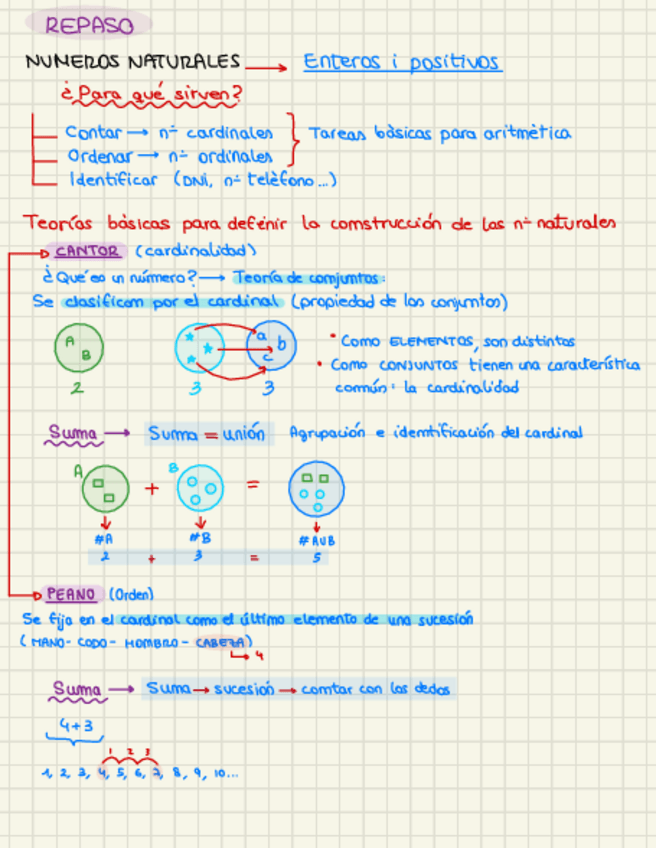 REPASO
NUMEROS NATURALES → Enteros i positivos
¿Para qué sirven?
Contar → nº cardinales
Tareas bàsicas para aritmètica
Ordenar → nº ordinales
Identificar (DNI, nº telèfono...)
Teorías bàsicas para definir la construcción de los nº naturales
CANTOR (cardinalidad)
¿Qué es un número? → Teoría de conjuntos:
Se clasifican por el cardinal (propiedad de los conjuntos)
A B
a b c
2 3 3
• Como ELEMENTOS, son distintos
• Como CONJUNTOS tienen una característica
común: la cardinalidad
Suma → Suma = unión Agrupación e identificación del cardinal
A + B =
#A #B #AUB
2 + 3 = 5
PEANO (Orden)
Se fija en el cardinal como el último elemento de una sucesión
(MANO - CODO - HOMBRO - CABEZA)
4
Suma → Suma → sucesión → contar con los dedos
4+3
1 2 3
1, 2, 3, 4, 5, 6, 7, 8, 9, 10...